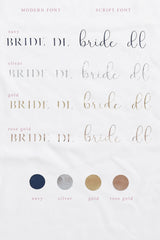 MODERN FONT SCRIPT FONT
navy
BRIDE DL bride dl
silver
BRIDE DL bride dl
gold
BRIDE DL bride dl
rose gold
BRIDE DL bride dl
navy silver gold rose gold